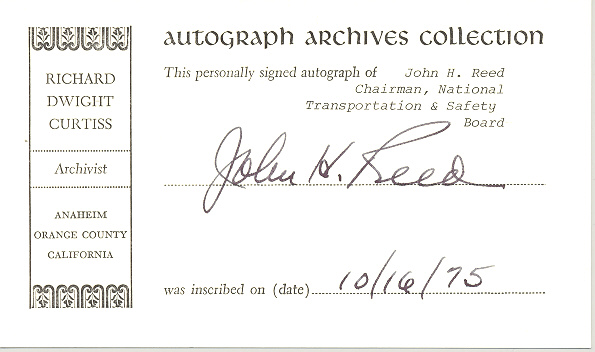 RICHARD
DWIGHT
CURTISS
Archivist
ANAHEIM
ORANGE COUNTY
CALIFORNIA
autograph archives collection
This personally signed autograph of John H. Reed
Chairman, National
Transportation & Safety
Board
John H. Reed
was inscribed on (date) 10/16/75